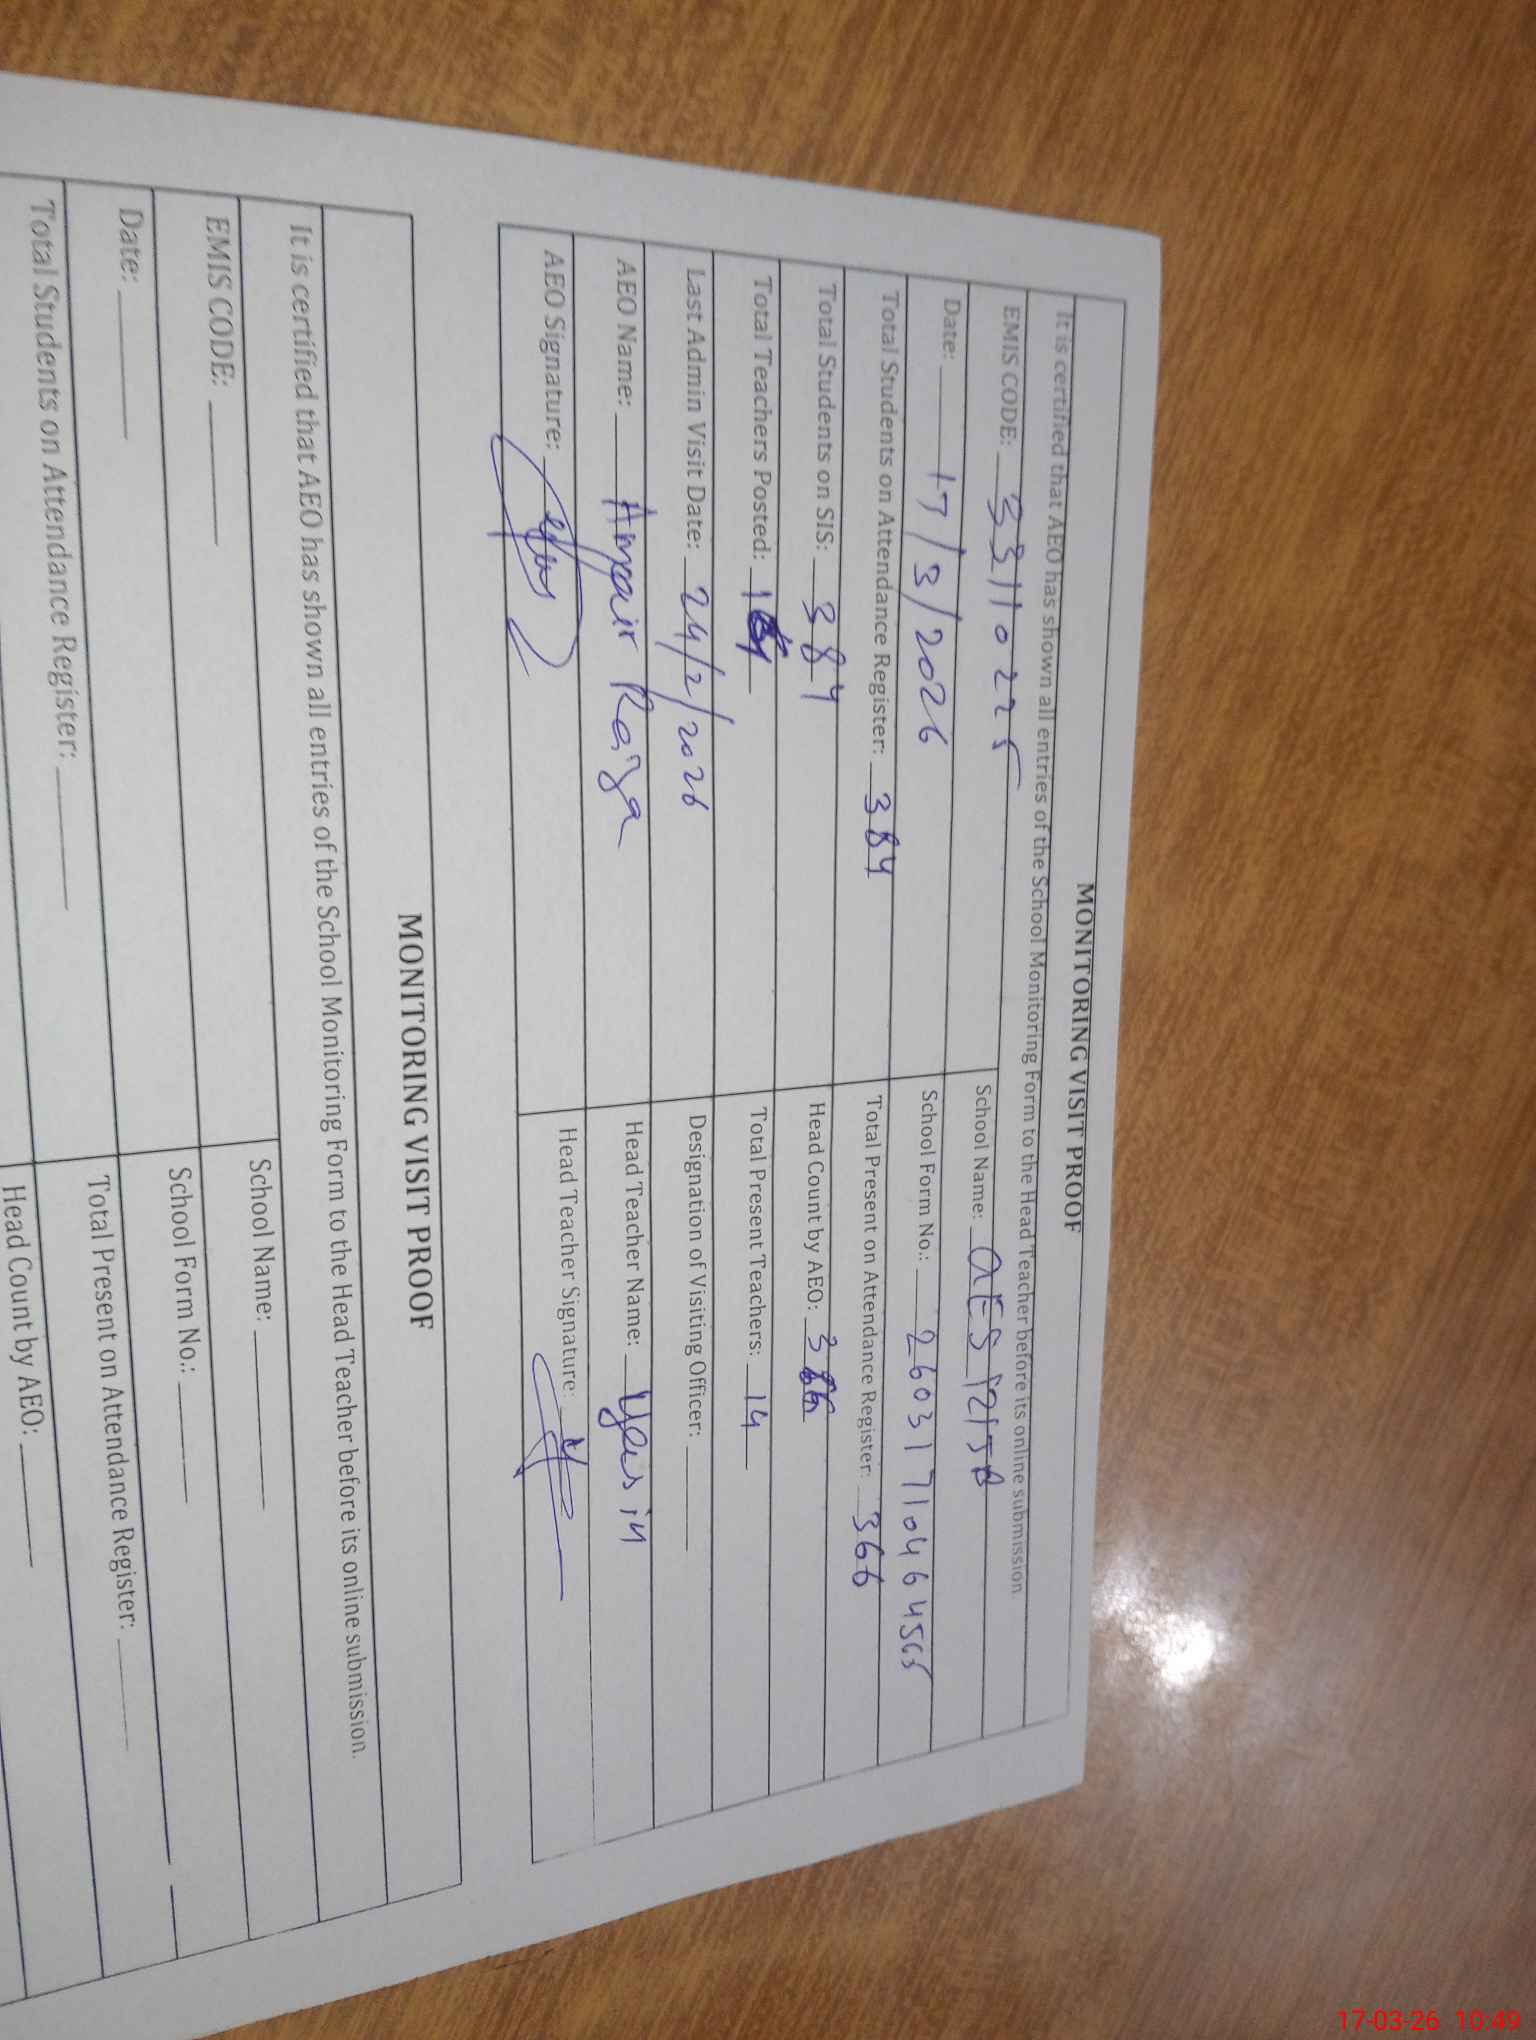 MONITORING VISIT PROOF
It is certified that AEO has shown all entries of the School Monitoring Form to the Head Teacher before its online submission.
EMIS CODE: 33110225
School Name: GES 1215B
Date: 17/3/2026
School Form No.: 26031710464565
Total Students on Attendance Register: 384
Total Present on Attendance Register: 366
Total Students on SIS: 384
Head Count by AEO: 366
Total Teachers Posted:
Total Present Teachers: 14
Last Admin Visit Date: 24/2/2026
Designation of Visiting Officer:
AEO Name: Raza
Head Teacher Name: Yasin
AEO Signature:
Head Teacher Signature:
MONITORING VISIT PROOF
It is certified that AEO has shown all entries of the School Monitoring Form to the Head Teacher before its online submission.
EMIS CODE:
School Name:
Date:
School Form No.:
Total Students on Attendance Register:
Total Present on Attendance Register:
Head Count by AEO:
17-03-26 10:49